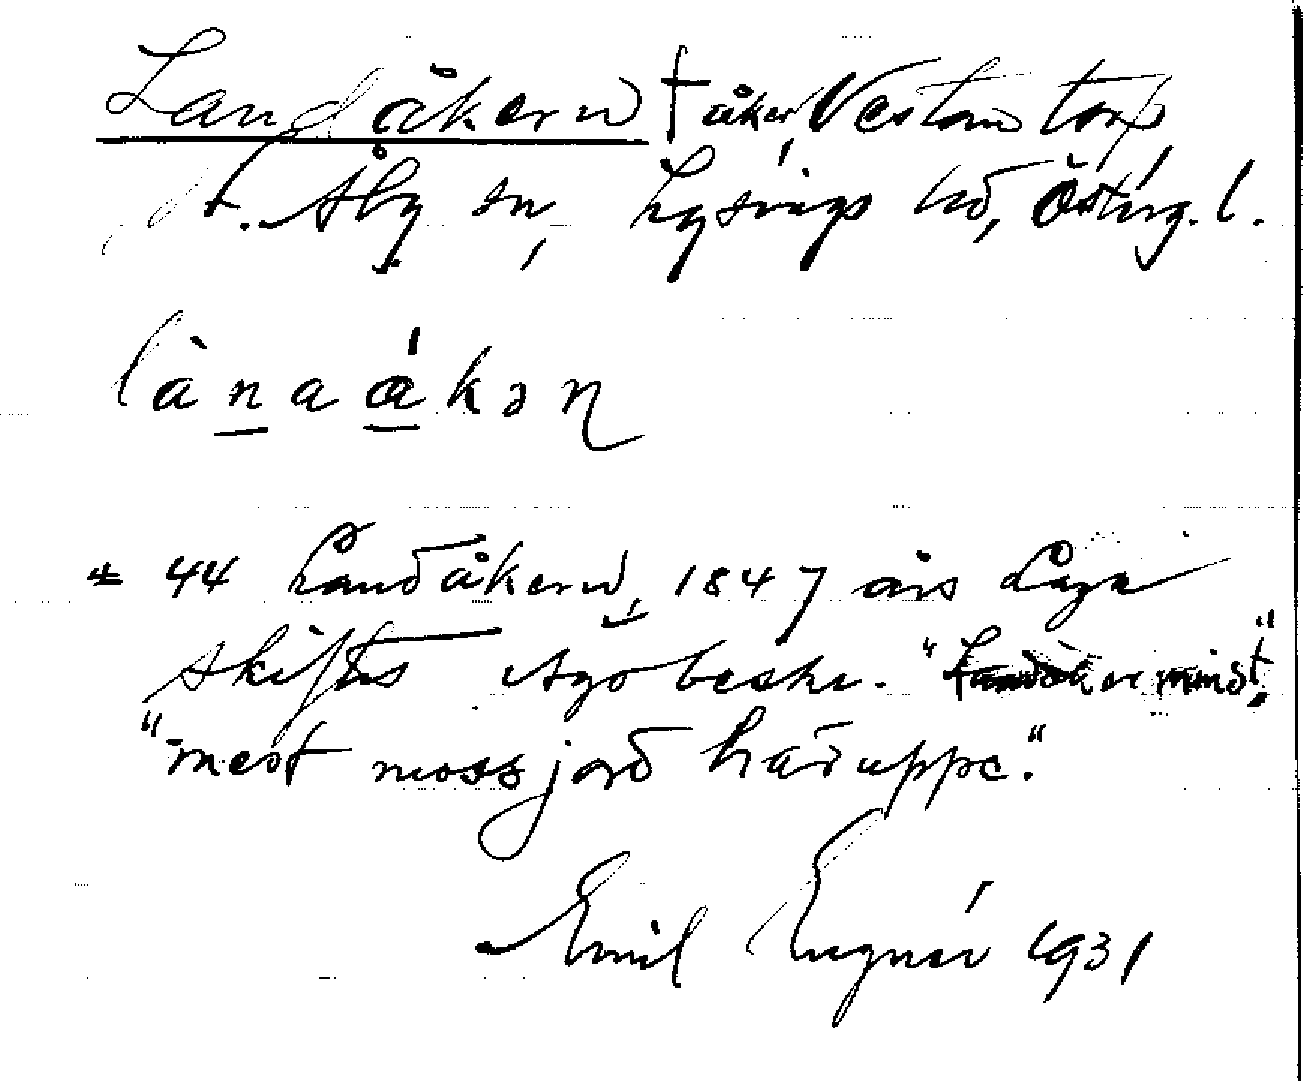 Landåkern † åker, Vestantorp
st. Åby sn, Lysings hd, Östерg.l.
lànaákən
± 44 Landåkern, 1847 års Laga
skiftes Ägobeskr. "Landåker minst"
"mest mossjord häruppe."
Emil Engnér 1931